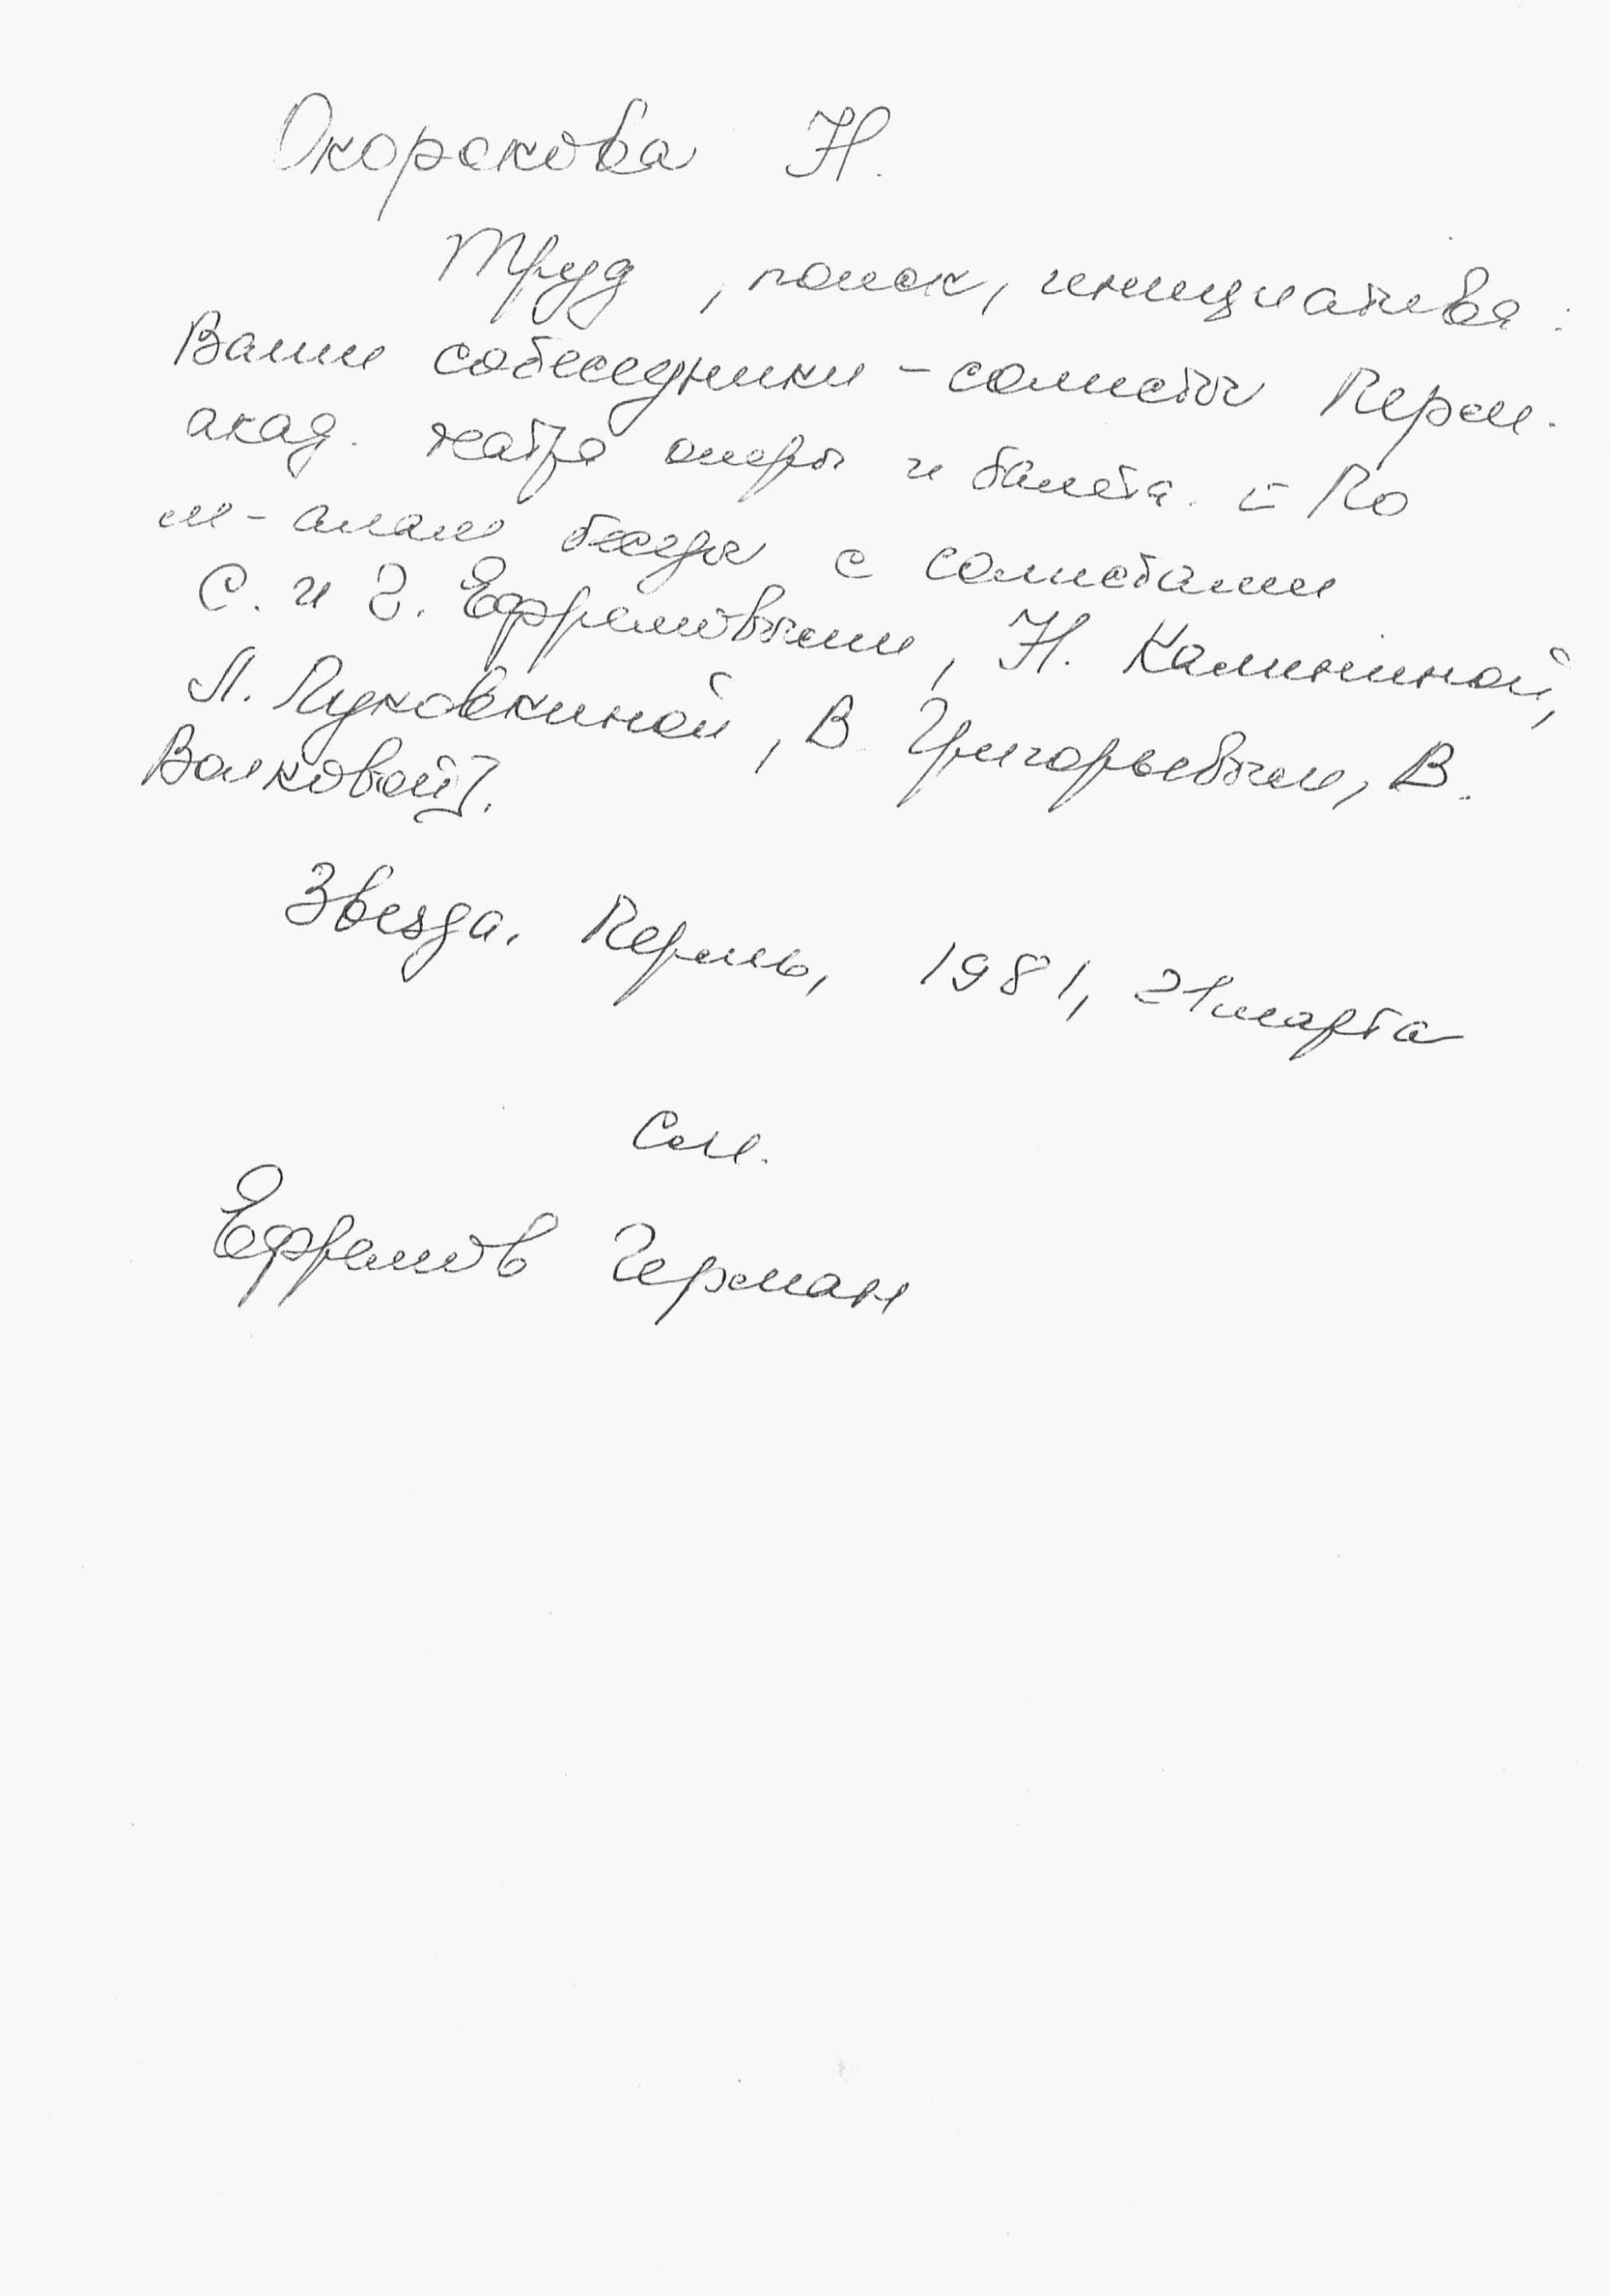 Окоракова Н.
Труд, поиск, инициатива:
Ваши собеседники - солисты Перм.
акад. театра оперы и балета. [По
м-алам беседы с солистами
С. и Г. Ефремовыми, Н. Калининой,
Л. Луковкиной, В. Григорьевым, В.
Волковой].
Звезда. Пермь, 1981, 21 марта
См.
Ефремов Герман